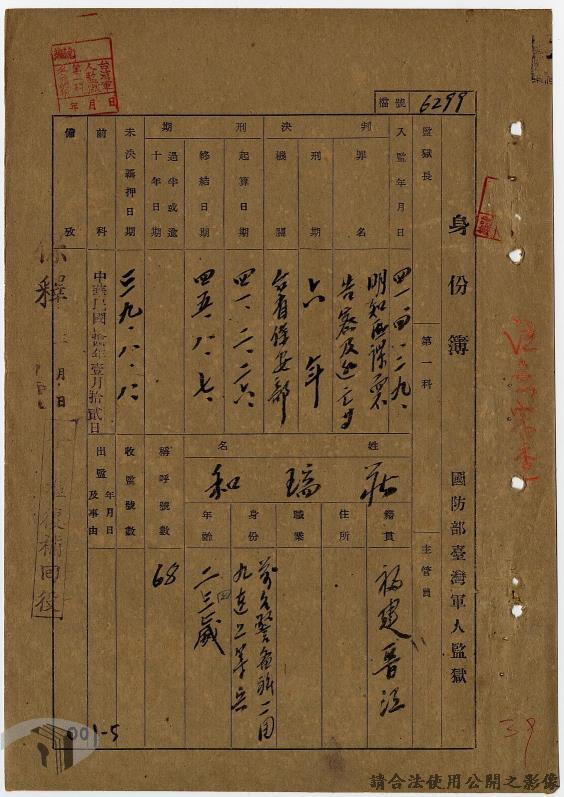 檔號 6299
身份簿
國防部臺灣軍人監獄
監獄長
第一科
主管員
入監年月日
四一、四、二九、
判決
罪名
明知為匪諜而不告密及逃亡
刑期
六年
機關
台省保安部
刑期
起算日期
四一、二、二六、
終結日期
四五、八、七、
過半或逾十年日期
未決羈押日期
三九、八、八、
前科
備攷
中華民國拾年壹月拾貳日
開釋
月 日
復補回役
姓名
莊瑞和
籍貫
福建晉江
住所
職業
身份
九連上等兵
年齡
二三歲
稱呼號數
68
收監號數
出監年月日及事由
001-5
39
年 月 日
請合法使用公開之影像